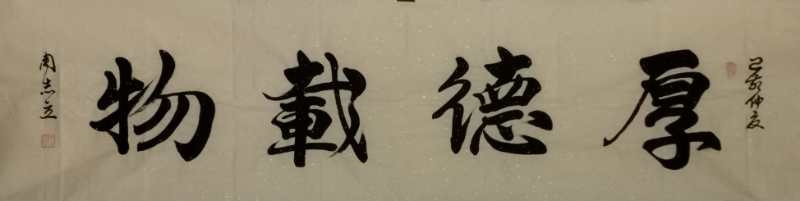 己亥仲夏
厚德載物
周志立